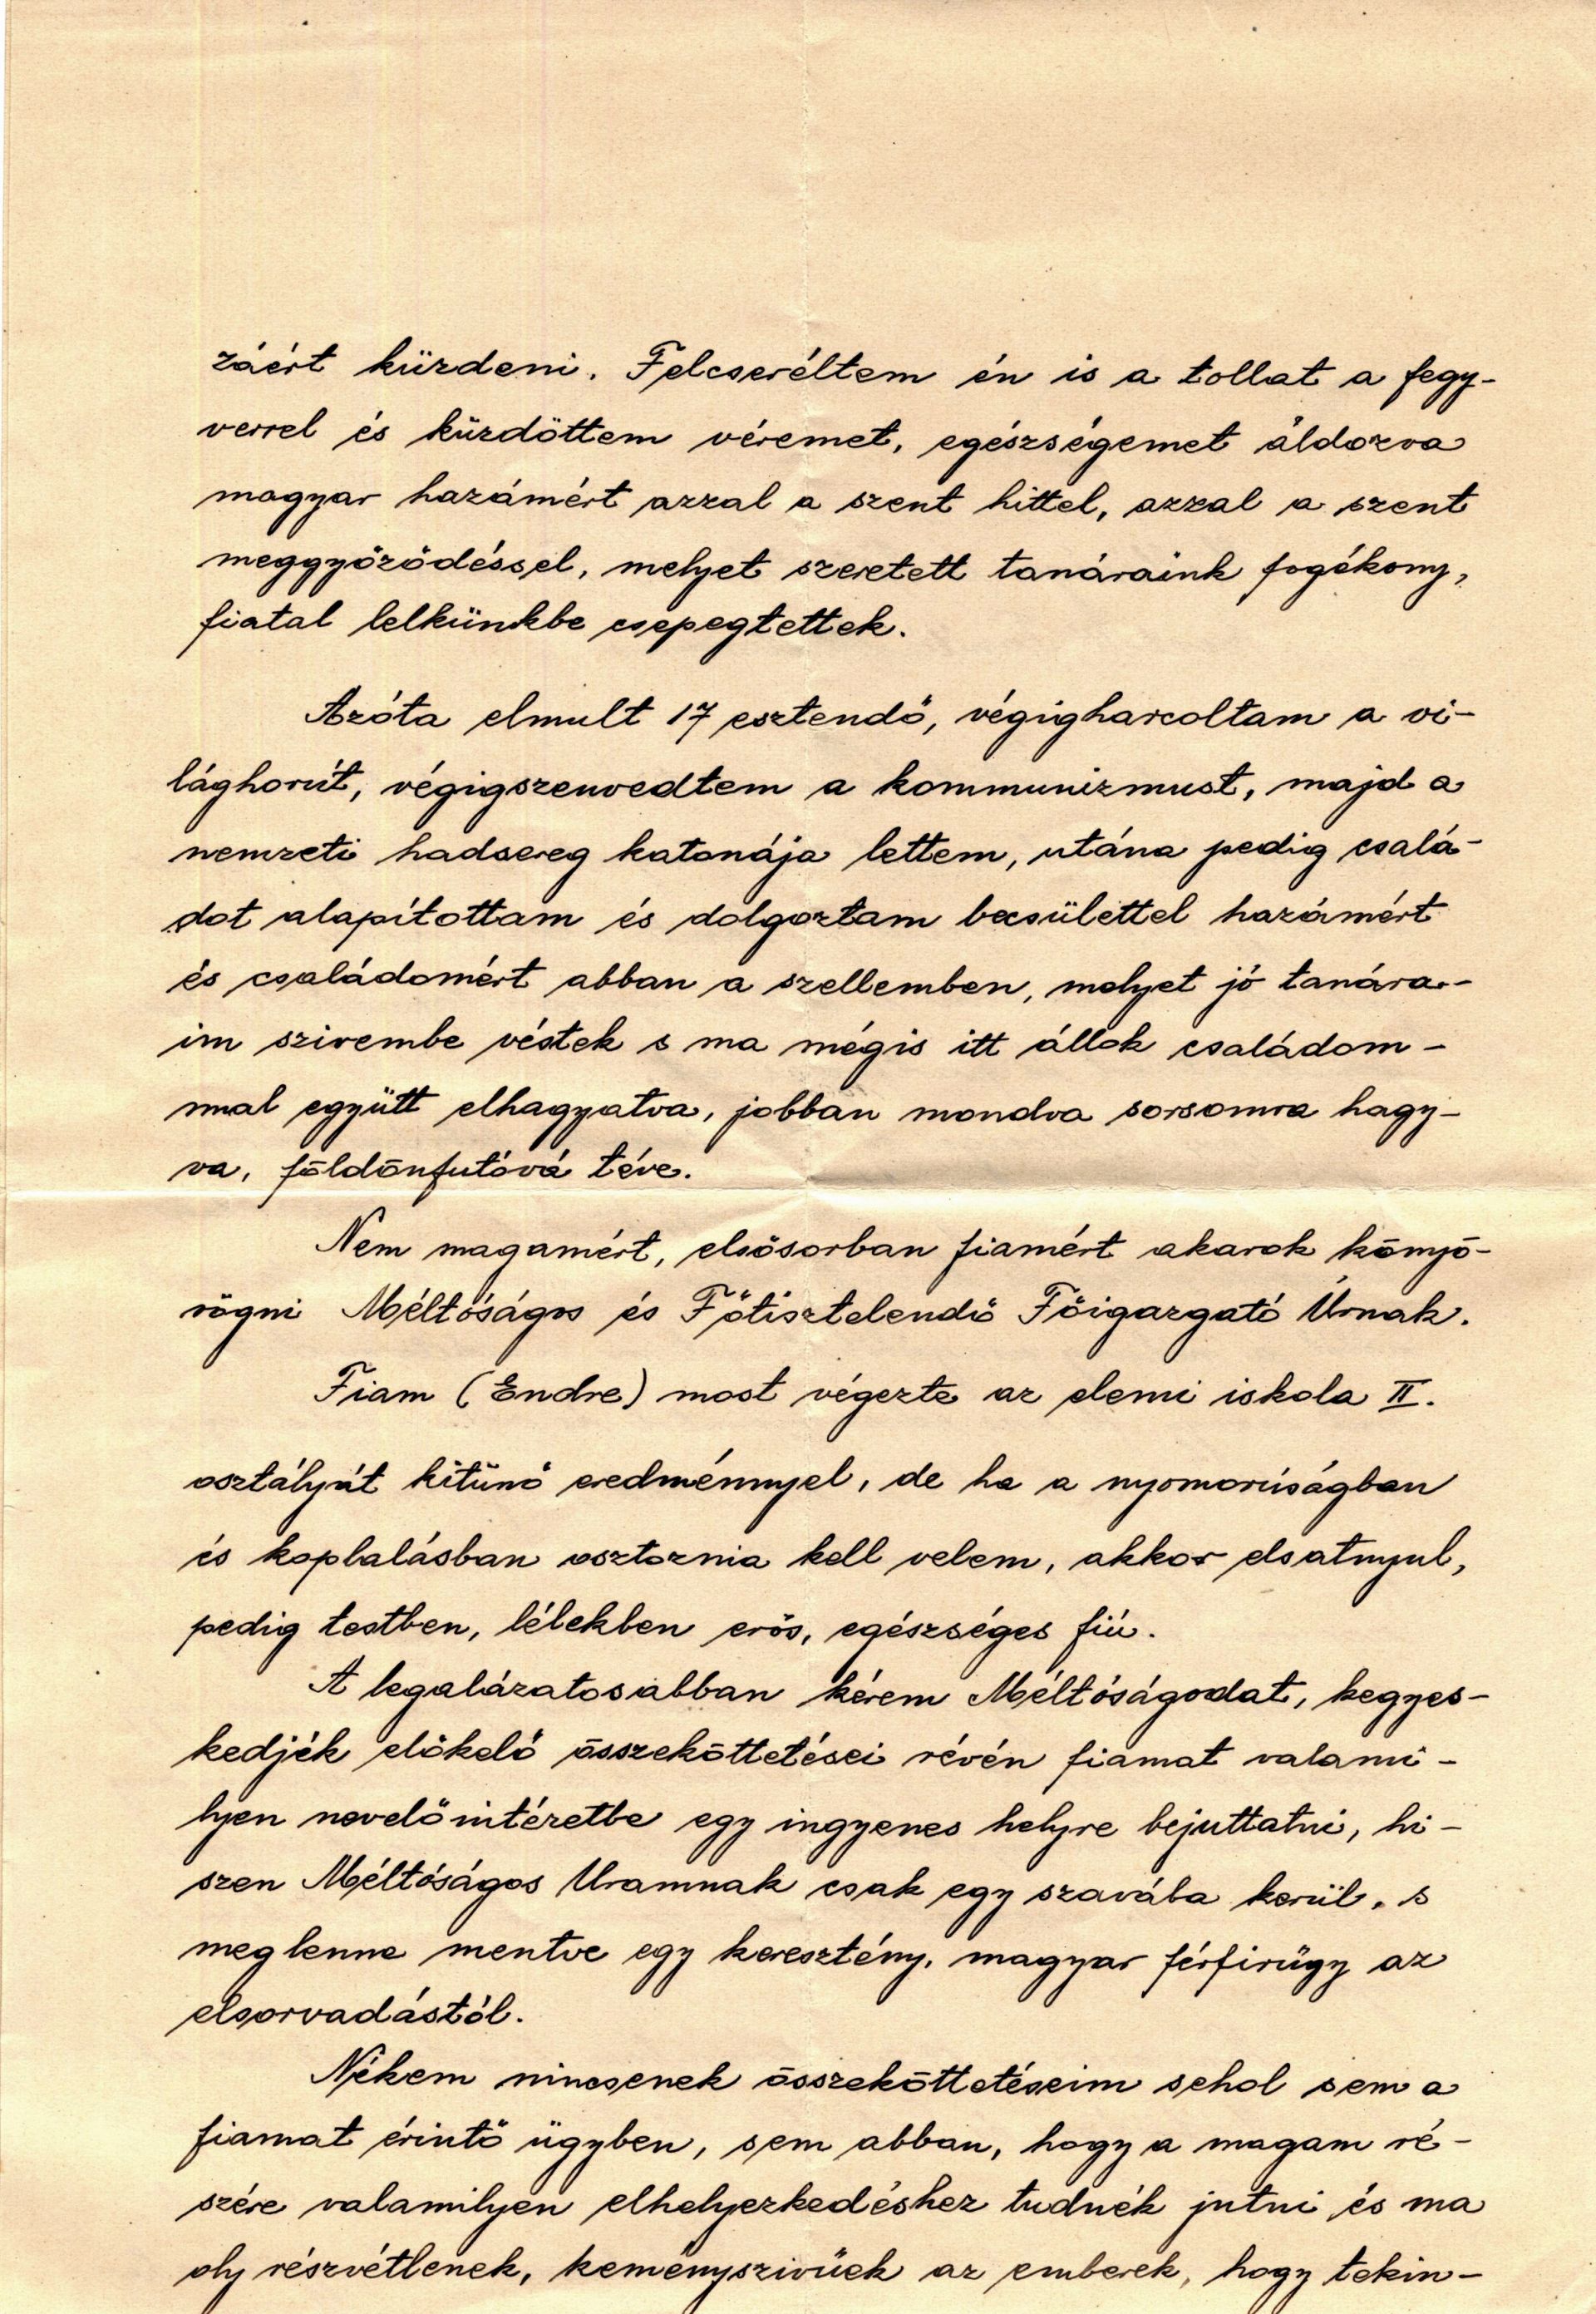 záért küzdeni. Felcseréltem én is a tollat a fegy-
verrel és küzdöttem véremet, egészségemet áldozva
magyar hazámért azzal a szent hittel, azzal a szent
meggyőződéssel, melyet szeretett tanáraink fogékony,
fiatal lelkünkbe csepegtettek.
Azóta elmult 17 esztendő, végigharcoltam a vi-
lághorút, végigszenvedtem a kommunizmust, majd a
nemzeti hadsereg katonája lettem, utána pedig csalá-
dot alapítottam és dolgoztam becsülettel hazámért
és családomért abban a szellemben, melyet jó tanára-
im szivembe véstek s ma mégis itt állok családom-
mal együtt elhagyatva, jobban mondva sorsomra hagy-
va, földönfutóvá téve.
Nem magamért, elsősorban fiamért akarok könyö-
rögni Méltóságos és Főtisztelendő Főigazgató Úrnak.
Fiam (Endre) most végezte az elemi iskola II.
osztályát kitünő eredménnyel, de ha a nyomorúságban
és koplalásban osztoznia kell velem, akkor elsatnyul,
pedig testben, lélekben erős, egészséges fiú.
A legalázatosabban kérem Méltóságodat, kegyes-
kedjék előkelő összeköttetései révén fiamat valami-
lyen nevelőintézetbe egy ingyenes helyre bejuttatni, hi-
szen Méltóságos Uramnak csak egy szavába kerül, s
meglenne mentve egy keresztény, magyar férfirügy az
elsorvadástól.
Nékem nincsenek összeköttetéseim sehol sem a
fiamat érintő ügyben, sem abban, hogy a magam ré-
szére valamilyen elhelyezkedéshez tudnék jutni és ma
oly részvétlenek, keményszivüek az emberek, hogy tekin-